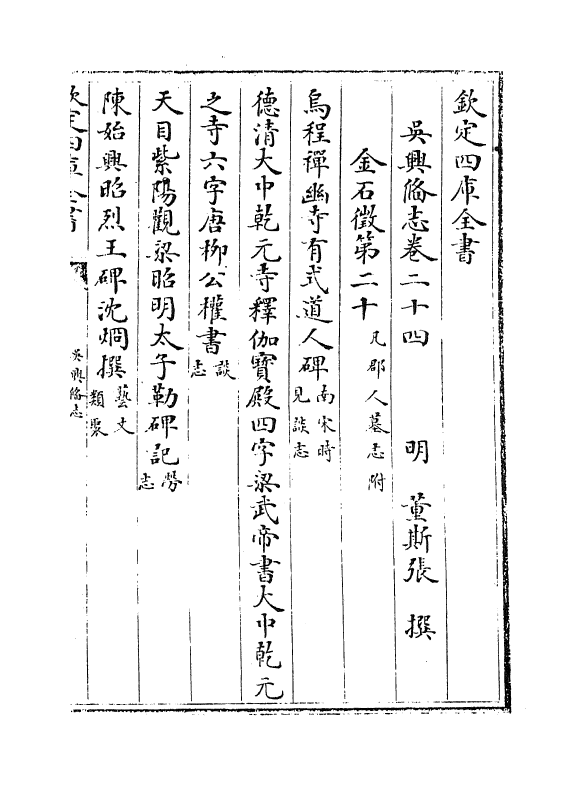 欽定四庫全書
吳興備志卷二十四　明　董斯張　撰
金石徵第二十凡郡人墓志附
烏程禪幽寺有式道人碑南宋時見談志
德清大中乾元寺釋伽寶殿四字梁武帝書大中乾元
之寺六字唐柳公權書談志
天目紫陽觀梁昭明太子勒碑記勞志
陳始興昭烈王碑沈烱撰藝文類聚
欽定四庫全書
吳興備志